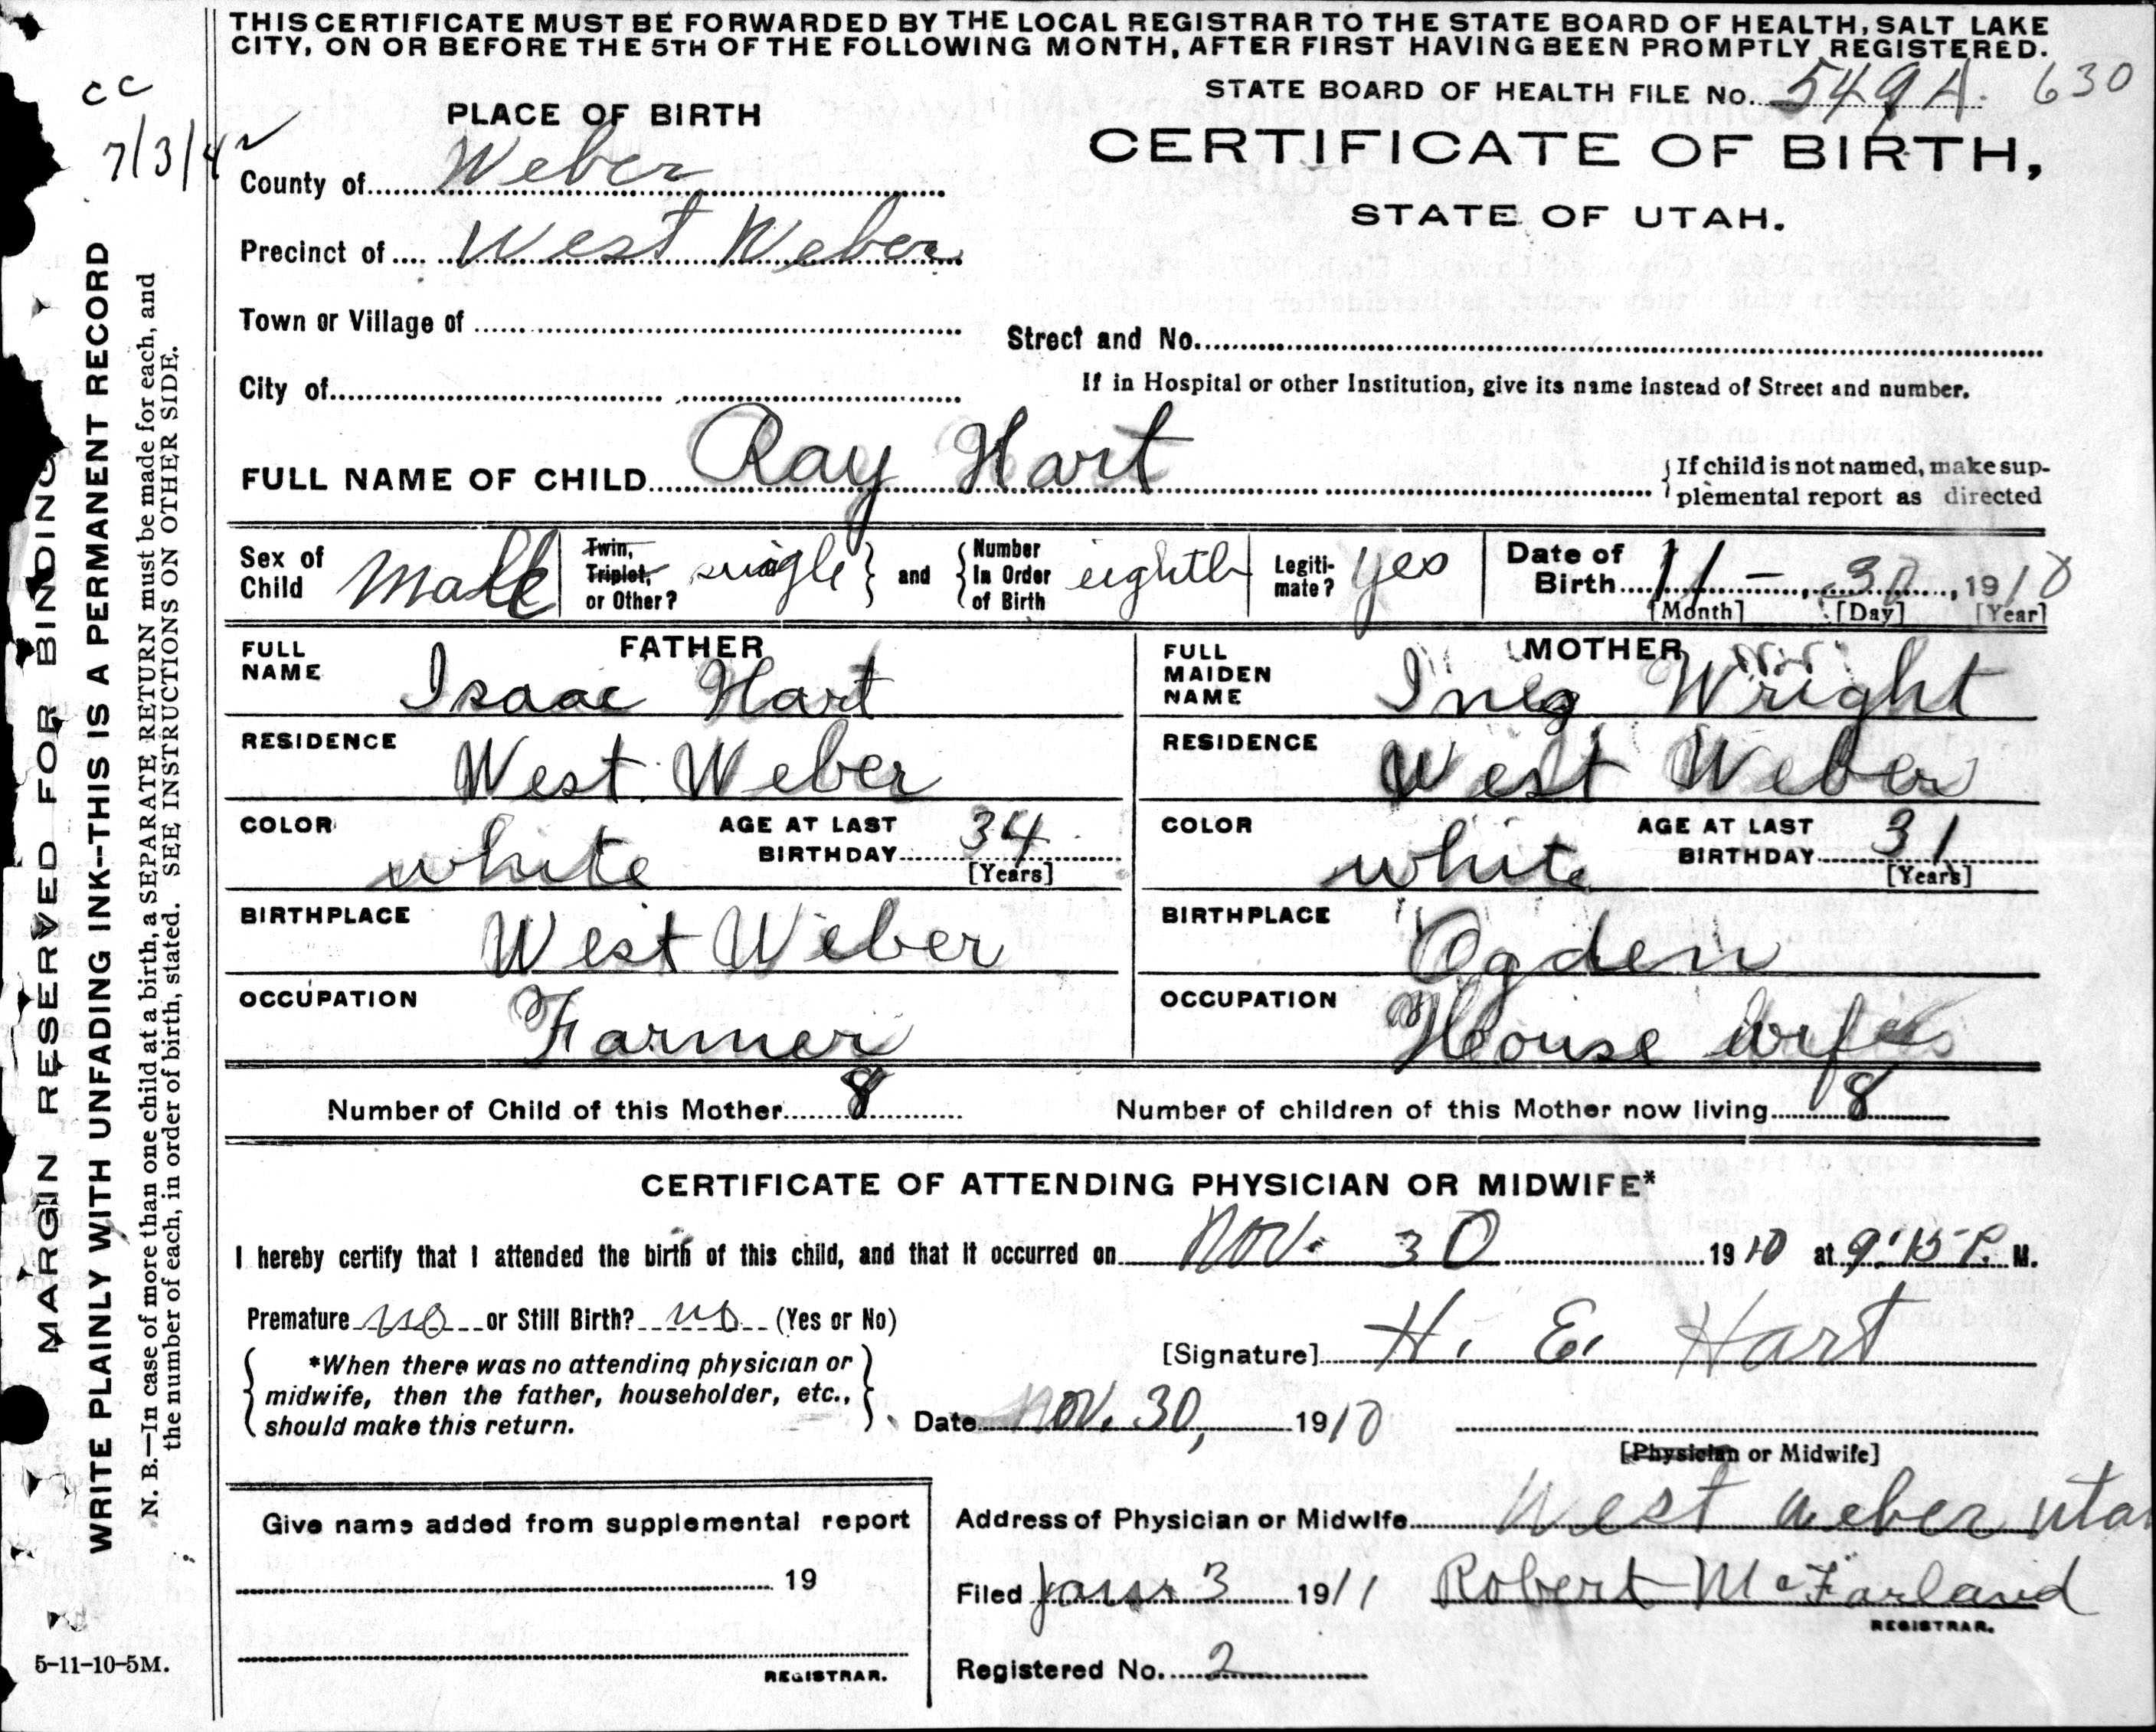 THIS CERTIFICATE MUST BE FORWARDED BY THE LOCAL REGISTRAR TO THE STATE BOARD OF HEALTH, SALT LAKE
CITY, ON OR BEFORE THE 5TH OF THE FOLLOWING MONTH, AFTER FIRST HAVING BEEN PROMPTLY REGISTERED.
STATE BOARD OF HEALTH FILE No. 549A. 630
cc
7/3/42
PLACE OF BIRTH
CERTIFICATE OF BIRTH,
STATE OF UTAH.
County of Weber
Precinct of West Weber
Town or Village of
Street and No.
City of
If in Hospital or other Institution, give its name instead of Street and number.
FULL NAME OF CHILD Ray Hart
If child is not named, make sup-
plemental report as directed
Sex of Child Male
Twin, Triplet, or Other? single and Number In Order of Birth eighth
Legiti-mate? yes
Date of Birth 11 - 30, 1910
[Month] [Day] [Year]
FATHER
FULL NAME Isaac Hart
RESIDENCE West Weber
COLOR white AGE AT LAST BIRTHDAY 34 [Years]
BIRTHPLACE West Weber
OCCUPATION Farmer
MOTHER
FULL MAIDEN NAME Inez Wright
RESIDENCE West Weber
COLOR white AGE AT LAST BIRTHDAY 31 [Years]
BIRTHPLACE Ogden
OCCUPATION House wife
Number of Child of this Mother 8 Number of children of this Mother now living 8
CERTIFICATE OF ATTENDING PHYSICIAN OR MIDWIFE*
I hereby certify that I attended the birth of this child, and that it occurred on Nov. 30 1910 at 9:15 P. M.
Premature no or Still Birth? no (Yes or No)
*When there was no attending physician or
midwife, then the father, householder, etc.,
should make this return.
[Signature] H. E. Hart
Date Nov. 30, 1910
[Physician or Midwife]
Give name added from supplemental report
19
REGISTRAR.
Address of Physician or Midwife West Weber Uta
Filed Janur 3 1911 Robert McFarland
REGISTRAR.
Registered No. 2
MARGIN RESERVED FOR BINDING
WRITE PLAINLY WITH UNFADING INK--THIS IS A PERMANENT RECORD
N. B.—In case of more than one child at a birth, a SEPARATE RETURN must be made for each, and
the number of each, in order of birth, stated. SEE INSTRUCTIONS ON OTHER SIDE.
5-11-10-5M.